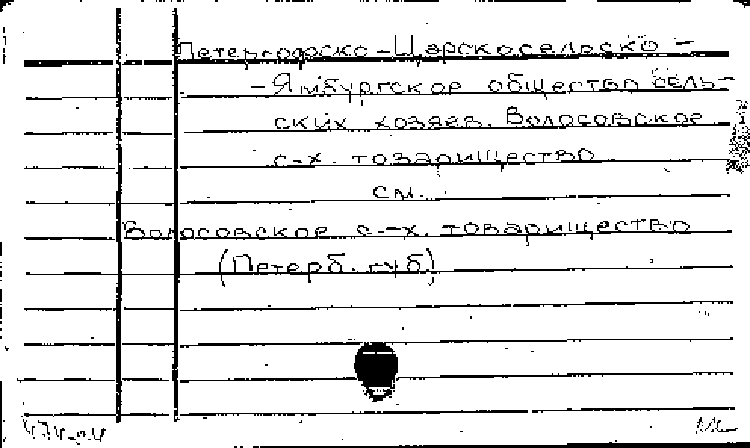 Петергофско-Царскосельско-
-Ямбургское общество сель-
ских хозяев. Волосовское
с-х. товарищество
см.
Волосовское с-х. товарищество
(Петерб. губ)